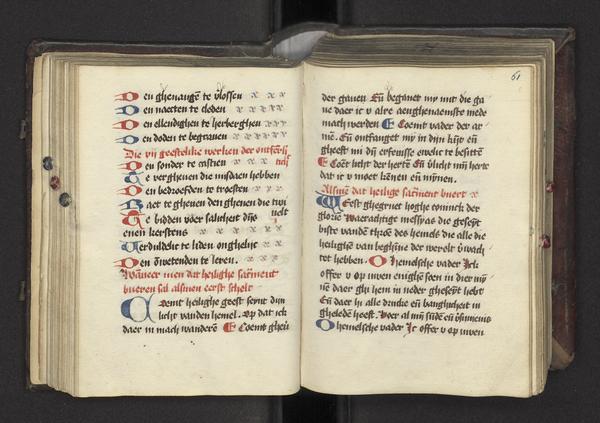 Den ghenangẽ te v̾lossen x x x
Den naecten te cleden x x x x x
Den ellendighen te herberghen x x x
Den doden te begrauen x x x x x
Die vij geestelike wercken der ontfer̃
Den sonder te castien x x x x
Te vergheuen die misdaen hebben
Den bedroefden te troesten x x x x
Raet te gheuen den ghenen die twi
uelt
Te bidden voer salicheit dijns
euen kerstens x x x x x
Verduldich te liden ongheliic x x
Den õwetenden te leren. x x x
Wãneer men dat heilighe sacr̃ment
bueren sal alsmen eerst schelt
Coemt heilighe geest seynt dijn
licht vanden hemel. Op dat ick
daer in mach wanderẽ Coemt gheu
61
der gauen Eñ beghaeft my mit die ga
ue daer ic v alre aenghenaemste mede
mach werden Coemt vader der ar
mẽ. Eñ ontfanget my in dijn kijt eñ
gheeft mi dij erfenisse ewelic te besittẽ
Coẽt licht der hertẽ Eñ v̾licht mij herte
dat ic v moet kẽnen eñ mỹnen.
Alsmẽ dat heilige sacr̃ment buert x
West ghegruet hoghe coninck der
glorie Waerachtige messyas die geseyt
biste vandẽ throẽ des hemels die alle die
heilighẽ van beghĩne der werelt v̾wach
tet hebben. O hemelsche vader Ick
offer v op uwen enighẽ soen in dier mỹ
ne daer ghi hem in neder gheseyt hebt
Eñ daer hi alle druck eñ bangicheit in
gheleden heeft. Voer al mij sũdẽ eñ v̾sumenis
O hemelsche vader Ic offer v op uwen